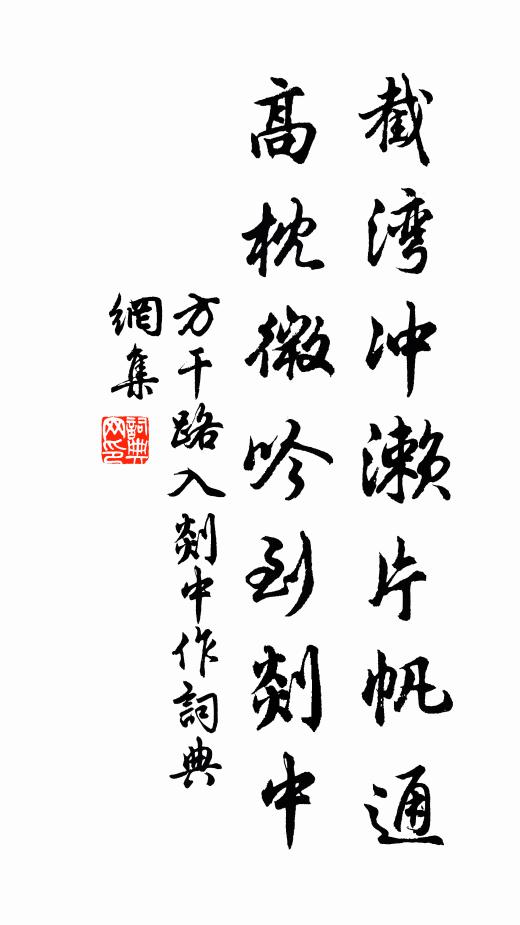 截湾冲濑片帆通
高枕微吟到剡中
方干路入剡中作詞典
網集
詞典
网印